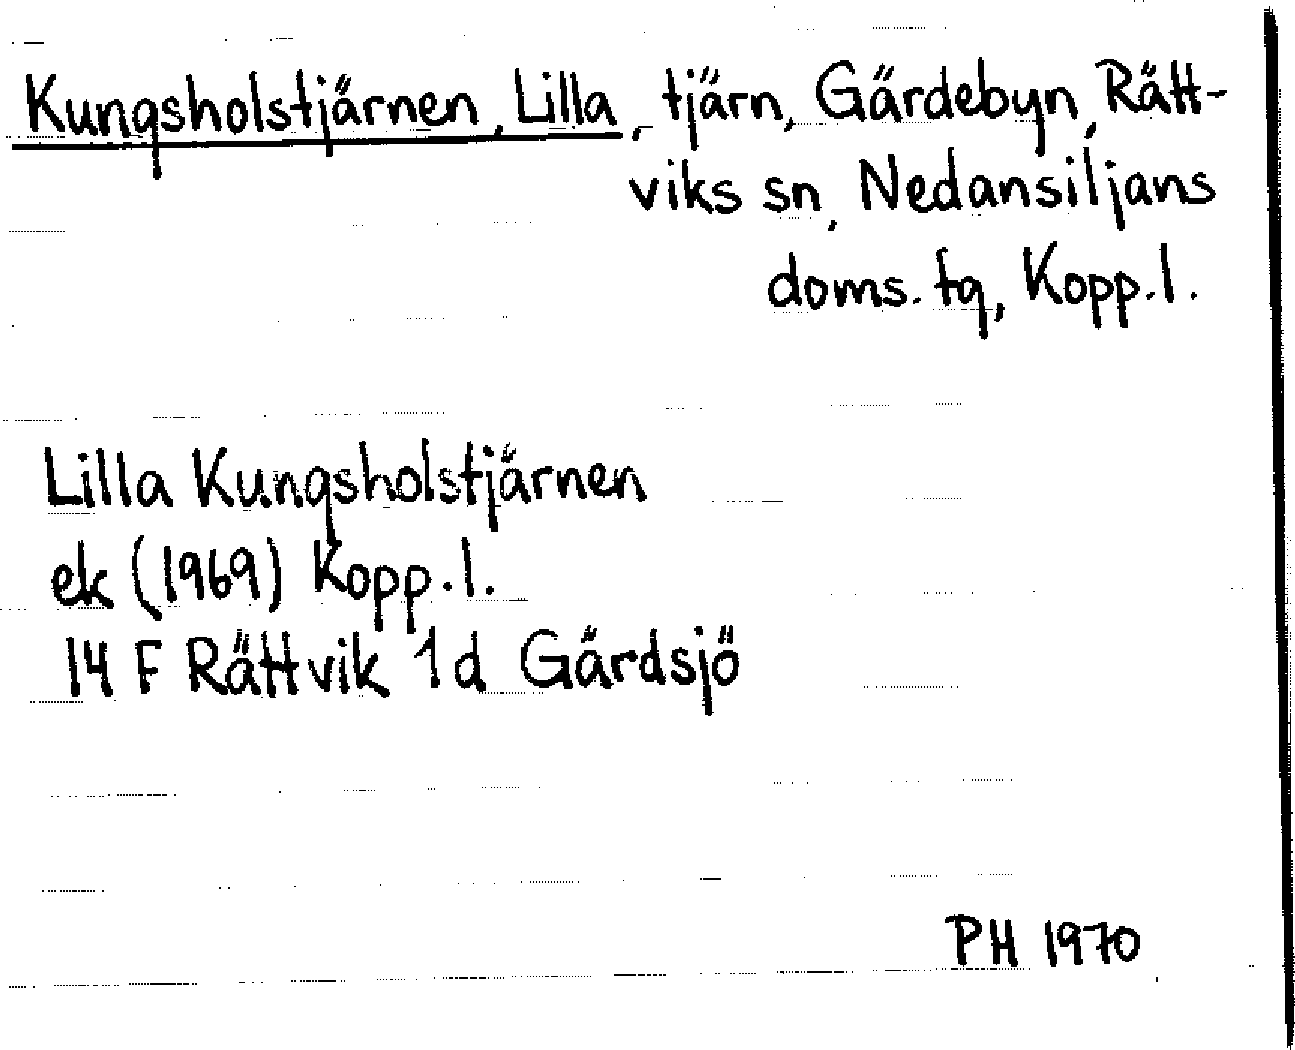 Kungsholstjärnen, Lilla, tjärn, Gärdebyn, Rätt-
viks sn, Nedansiljans
doms. tg, Kopp. l.
Lilla Kungsholstjärnen
ek (1969) Kopp. l.
14 F Rättvik 1d Gärdsjö
PH 1970